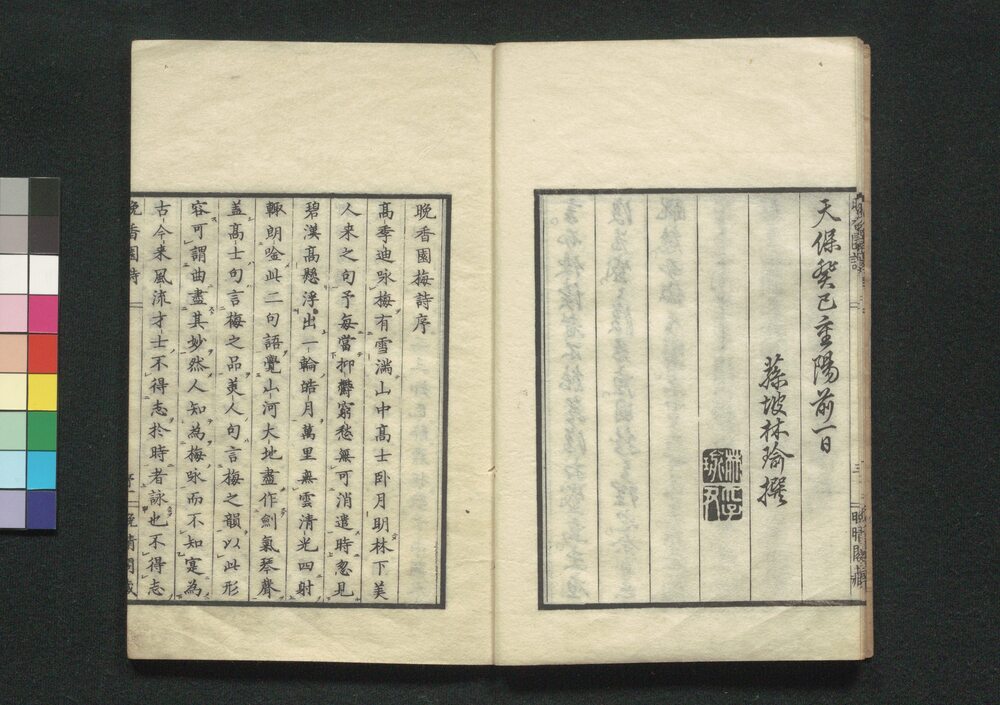 天保癸巳重陽前一日
蓀坡林瑜撰
晩晴閣藏
晩香園梅詩序
高季迪咏梅有雪滿山中高士卧月明林下美
人来之句予每當抑鬱窮愁無可消遣時忽見
碧漢高懸浮出一輪皓月萬里無雲清光四射
輙朗唫此二句語覺山河大地盡作劍氣琴聲
盖高士句言梅之品美人句言梅之韻以此形
容可謂曲盡其妙然人知為梅咏而不知寔為
古今来風流才士不得志於時者詠也不得志
晩香園詩